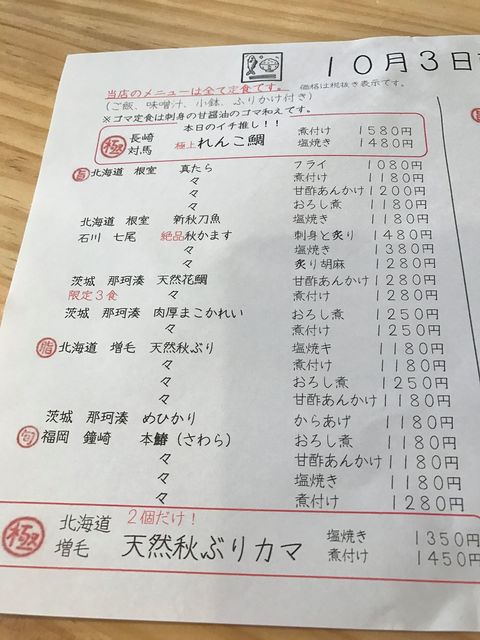 10月3日
当店のメニューは全て定食です。 価格は税抜き表示です。
(ご飯、味噌汁、小鉢、ふりかけ付き)
※ゴマ定食は刺身の甘醤油のゴマ和えです。
本日のイチ推し!!
極 長崎 対馬 極上 れんこ鯛 煮付け 1580円
塩焼き 1480円
旨 北海道 根室 真たら フライ 1080円
々 煮付け 1180円
々 甘酢あんかけ 1200円
々 おろし煮 1180円
北海道 根室 新秋刀魚 塩焼き 1180円
石川 七尾 絶品秋かます 刺身と炙り 1480円
々 塩焼き 1380円
々 炙り胡麻 1280円
茨城 那珂湊 天然花鯛 甘酢あんかけ 1280円
限定3食 々 煮付け 1280円
茨城 那珂湊 肉厚まこかれい おろし煮 1250円
々 煮付け 1250円
脂 北海道 増毛 天然秋ぶり 塩焼キ 1180円
々 煮付け 1180円
々 おろし煮 1250円
々 甘酢あんかけ 1180円
茨城 那珂湊 めひかり からあげ 1180円
旬 福岡 鐘崎 本鰆(さわら) おろし煮 1180円
々 甘酢あんかけ 1180円
々 塩焼き 1180円
々 煮付け 1280円
極 北海道 2個だけ! 塩焼き 1350円
増毛 天然秋ぶりカマ 煮付け 1450円